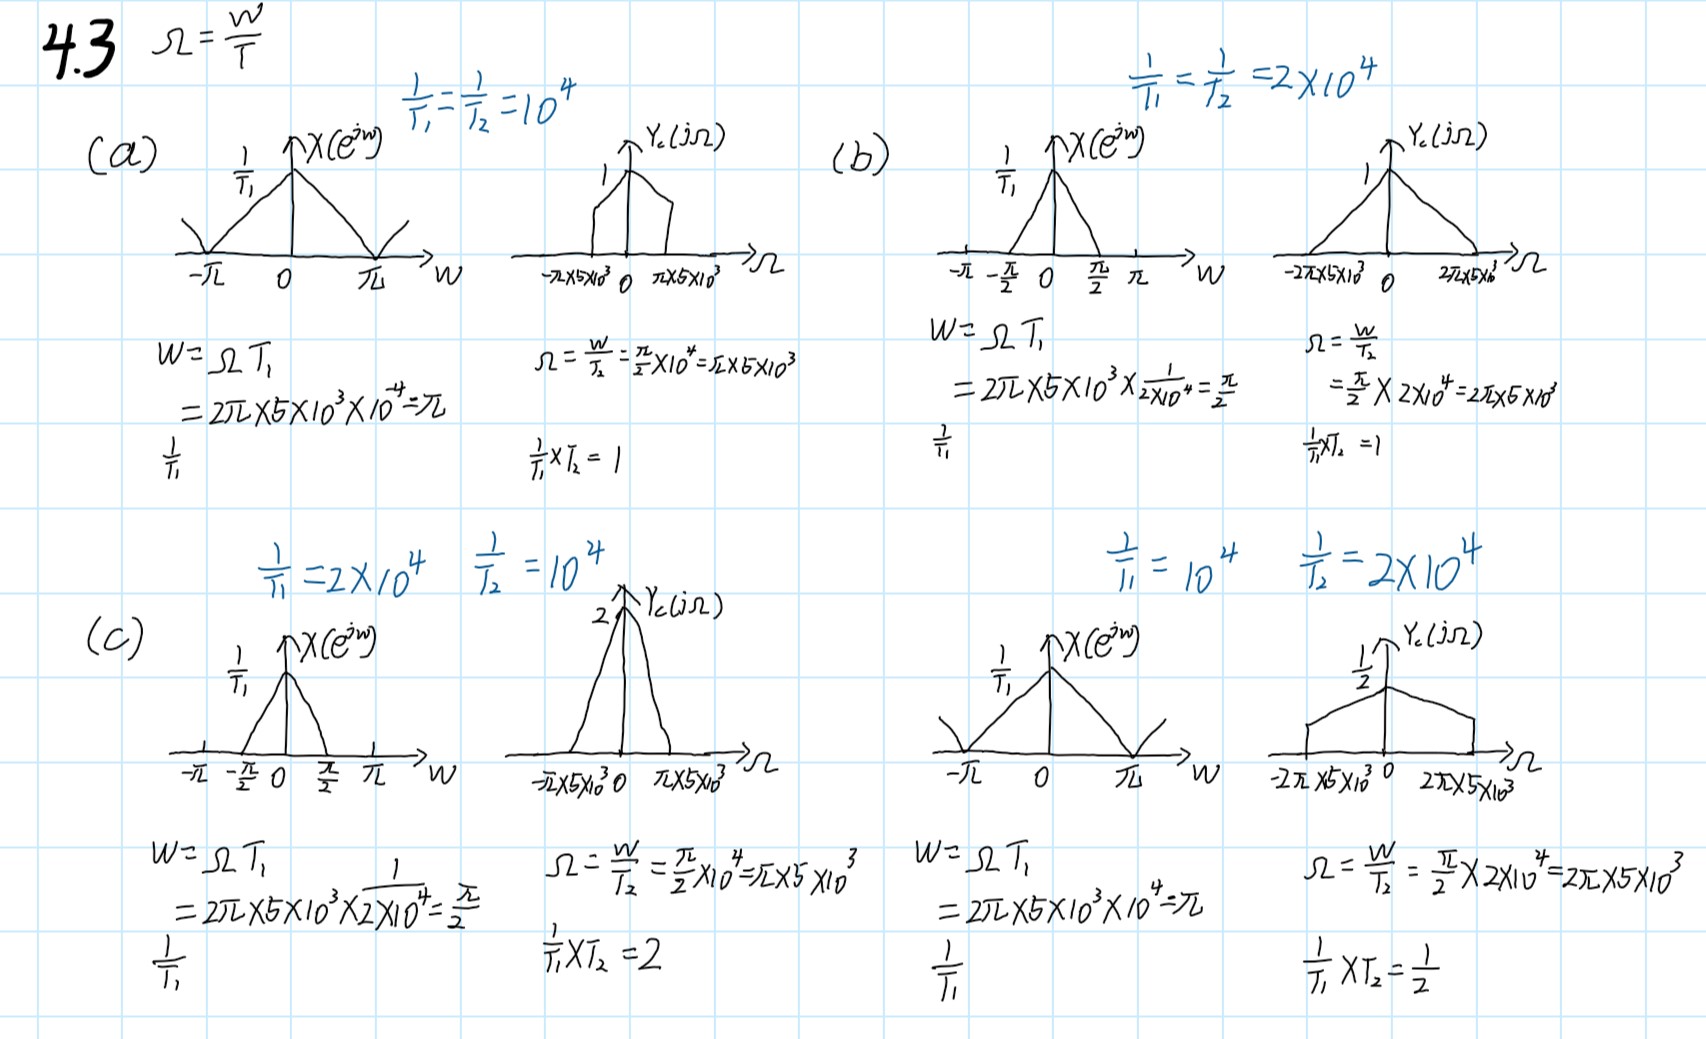 4.3 Ω = W/T
(a) 1/T₁ = 1/T₂ = 10⁴
1/T₁ X(e^jw)
-π 0 π W
1 Yc(jΩ)
-π×5×10³ 0 π×5×10³ Ω
W = ΩT₁
= 2π×5×10³×10⁻⁴ = π
1/T₁
Ω = W/T₂ = π/2 ×10⁴ = π×5×10³
1/T₁ × T₂ = 1
(b) 1/T₁ = 1/T₂ = 2×10⁴
1/T₁ X(e^jw)
-π -π/2 0 π/2 π W
1 Yc(jΩ)
-2π×5×10³ 0 2π×5×10³ Ω
W = ΩT₁
= 2π×5×10³× 1/2×10⁴ = π/2
1/T₁
Ω = W/T₂
= π/2 × 2×10⁴ = 2π×5×10³
1/T₁ ×T₂ = 1
(c) 1/T₁ = 2×10⁴ 1/T₂ = 10⁴
1/T₁ X(e^jw)
-π -π/2 0 π/2 π W
2 Yc(jΩ)
-π×5×10³ 0 π×5×10³ Ω
W = ΩT₁
= 2π×5×10³× 1/2×10⁴ = π/2
1/T₁
Ω = W/T₂ = π/2 ×10⁴ = π×5×10³
1/T₁ ×T₂ = 2
1/T₁ = 10⁴ 1/T₂ = 2×10⁴
1/T₁ X(e^jw)
-π 0 π W
1/2 Yc(jΩ)
-2π×5×10³ 0 2π×5×10³ Ω
W = ΩT₁
= 2π×5×10³×10⁴ = π
1/T₁
Ω = W/T₂ = π/2 × 2×10⁴ = 2π×5×10³
1/T₁ ×T₂ = 1/2